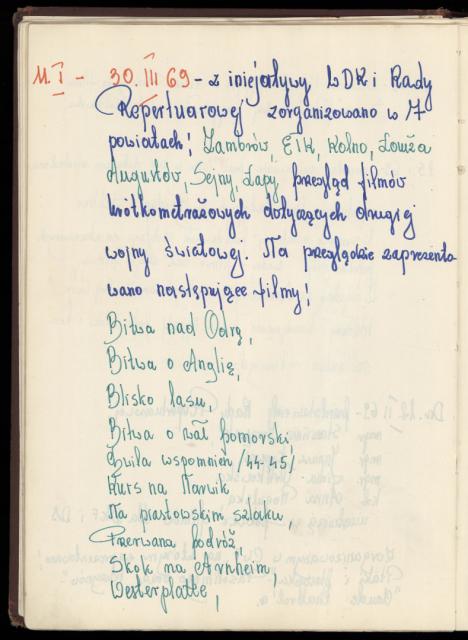 11. I - 30. III 69 - z inicjatywy WDK i Rady
Repertuarowej zorganizowano w 7
powiatach: Zambrów, Ełk, Kolno, Łomża
Augustów, Sejny, Łapy przegląd filmów
krótkometrażowych dotyczących drugiej
wojny światowej. Na przeglądzie zaprezento
wano następujące filmy:
Bitwa nad Odrą,
Bitwa o Anglię,
Blisko lasu,
Bitwa o wał pomorski
Chwila wspomnień /44-45/
Kurs na Narwik
Na piastowskim szlaku,
Przerwana podróż,
Skok na Arnheim,
Westerplatte,